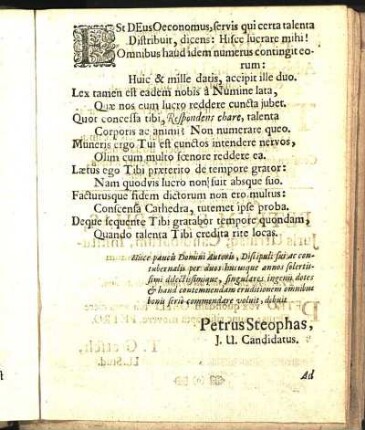 ESt DEus Oeconomus, servis qui certa talenta
Distribuit, dicens: Hisce lucrare mihi!
Omnibus haud idem numerus contingit eo-
rum:
Huic & mille datis, accipit ille duo.
Lex tamen est eadem nobis â Numine lata,
Quæ nos cum lucro reddere cuncta jubet.
Quot concessa tibi, Respondens chare, talenta
Corporis ac animi? Non numerare queo.
Muneris ergo Tui est cunctos intendere nervos,
Olim cum multo fœnore reddere ea.
Lætus ego Tibi præterito de tempore grator:
Nam quodvis lucro non suit absque suo.
Facturusque fidem dictorum non ero multus:
Conscensa Cathedra, tutemet ipse proba.
Deque sequente Tibi gratabor tempore quondam,
Quando talenta Tibi credita rite locas.
Hisce paucis Domini Autoris, Discipuli sui ac con-
tubernalis per duos hucusque annos solertis-
simi dilectissimique, singulares ingenii dotes
& haud contemnendam eruditionem omnibus
bonis seriò commendare voluit, debuit
Petrus Steophas,
J. U. Candidatus.
Ad